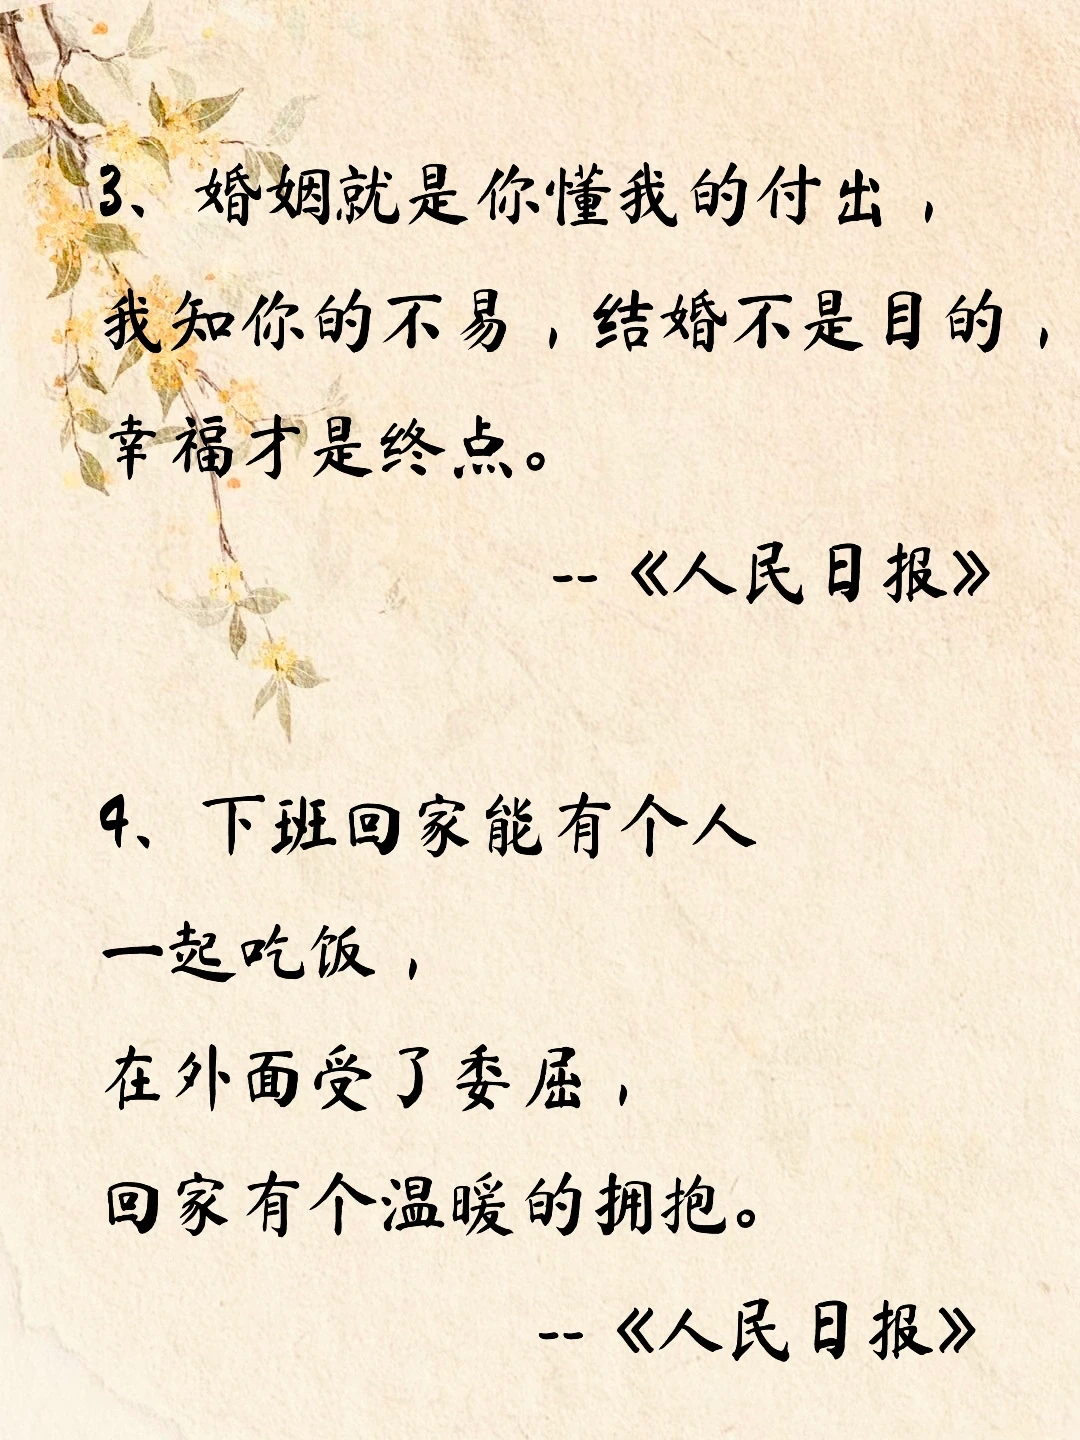 3、婚姻就是你懂我的付出，
我知你的不易，结婚不是目的，
幸福才是终点。
--《人民日报》
4、下班回家能有个人
一起吃饭，
在外面受了委屈，
回家有个温暖的拥抱。
--《人民日报》